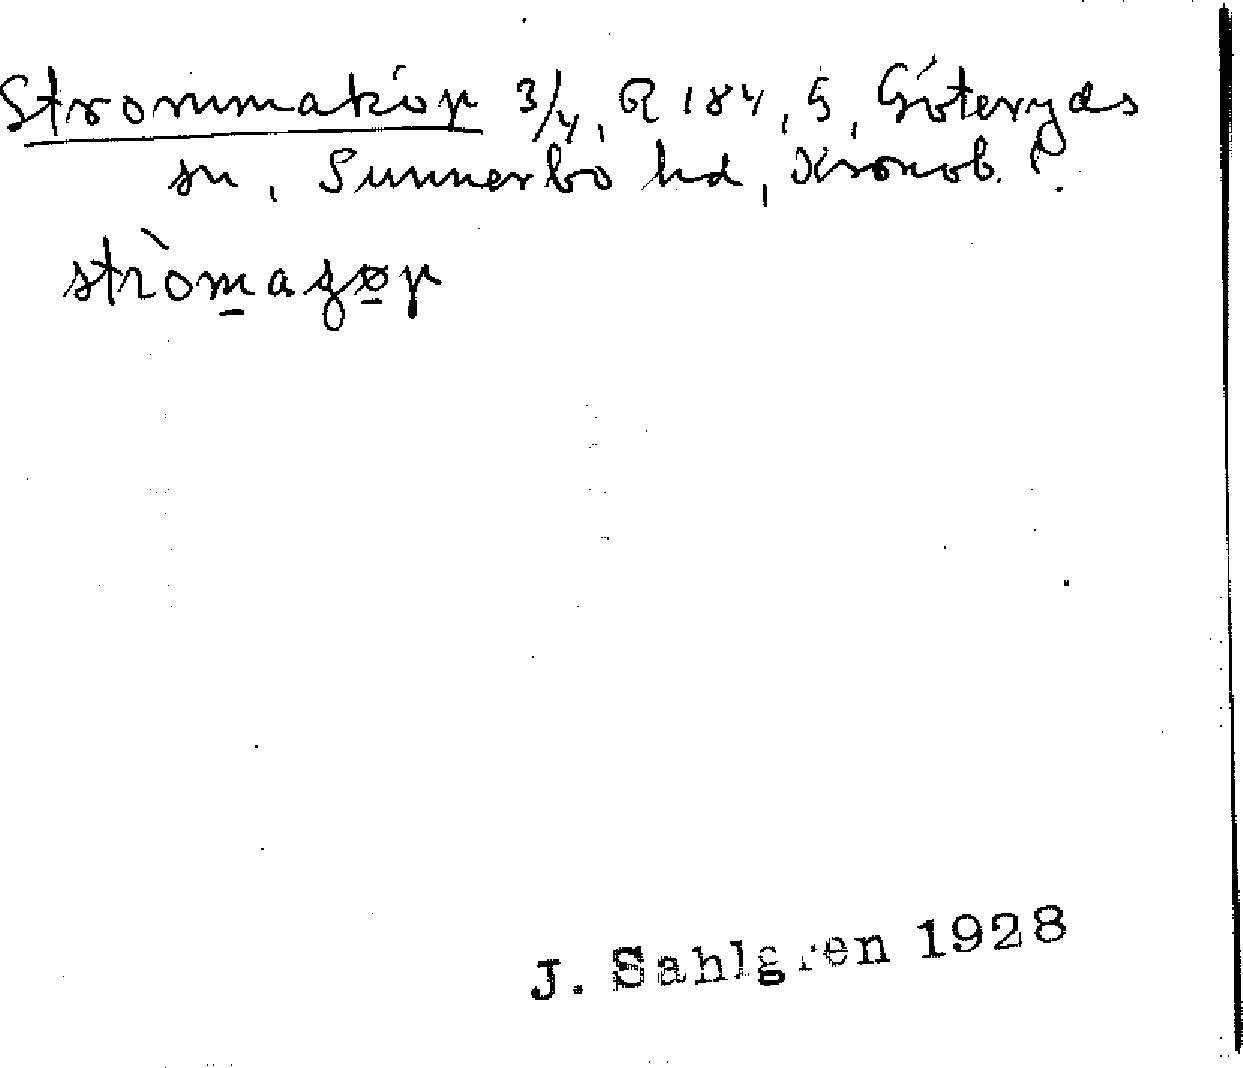 Strommaköp 3/4, R 184, 5, Göteryds
sn, Sunnerbo hd, Kronob. l.
stròmagøp
J. Sahlgren 1928